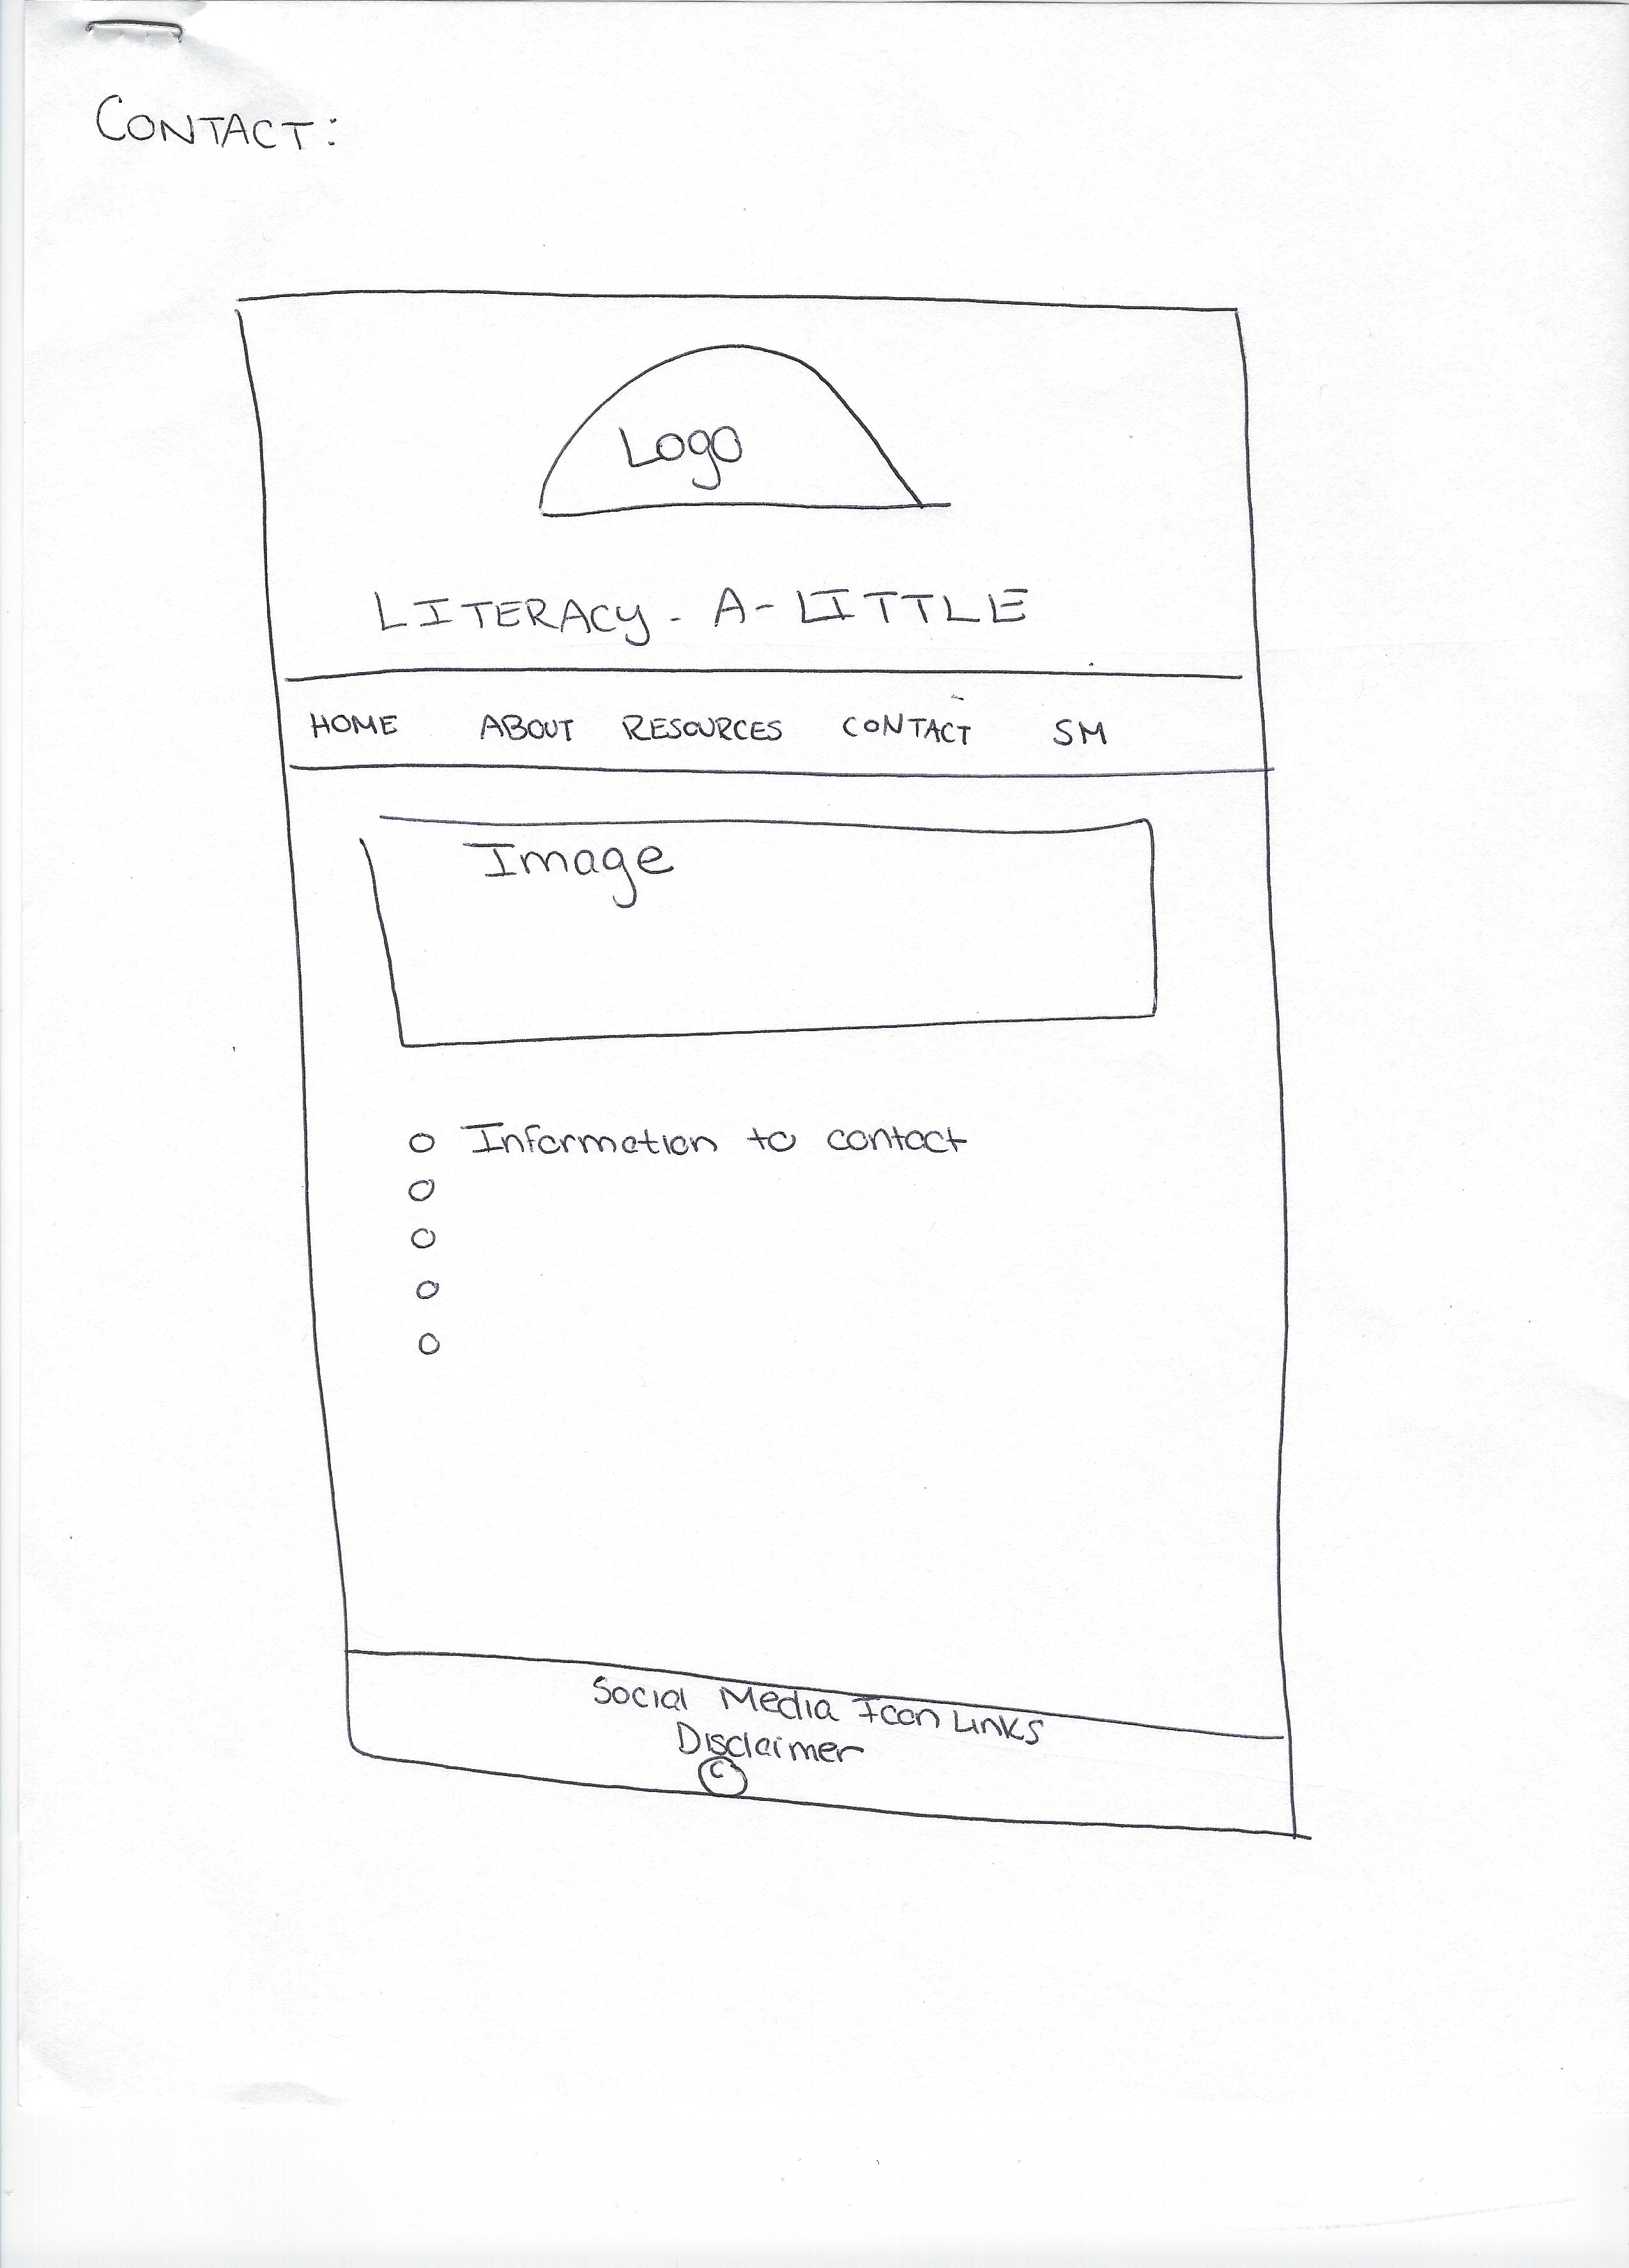 CONTACT:
Logo
LITERACY - A - LITTLE
HOME ABOUT RESOURCES CONTACT SM
Image
Information to contact
Social Media Icon Links
Disclaimer
©